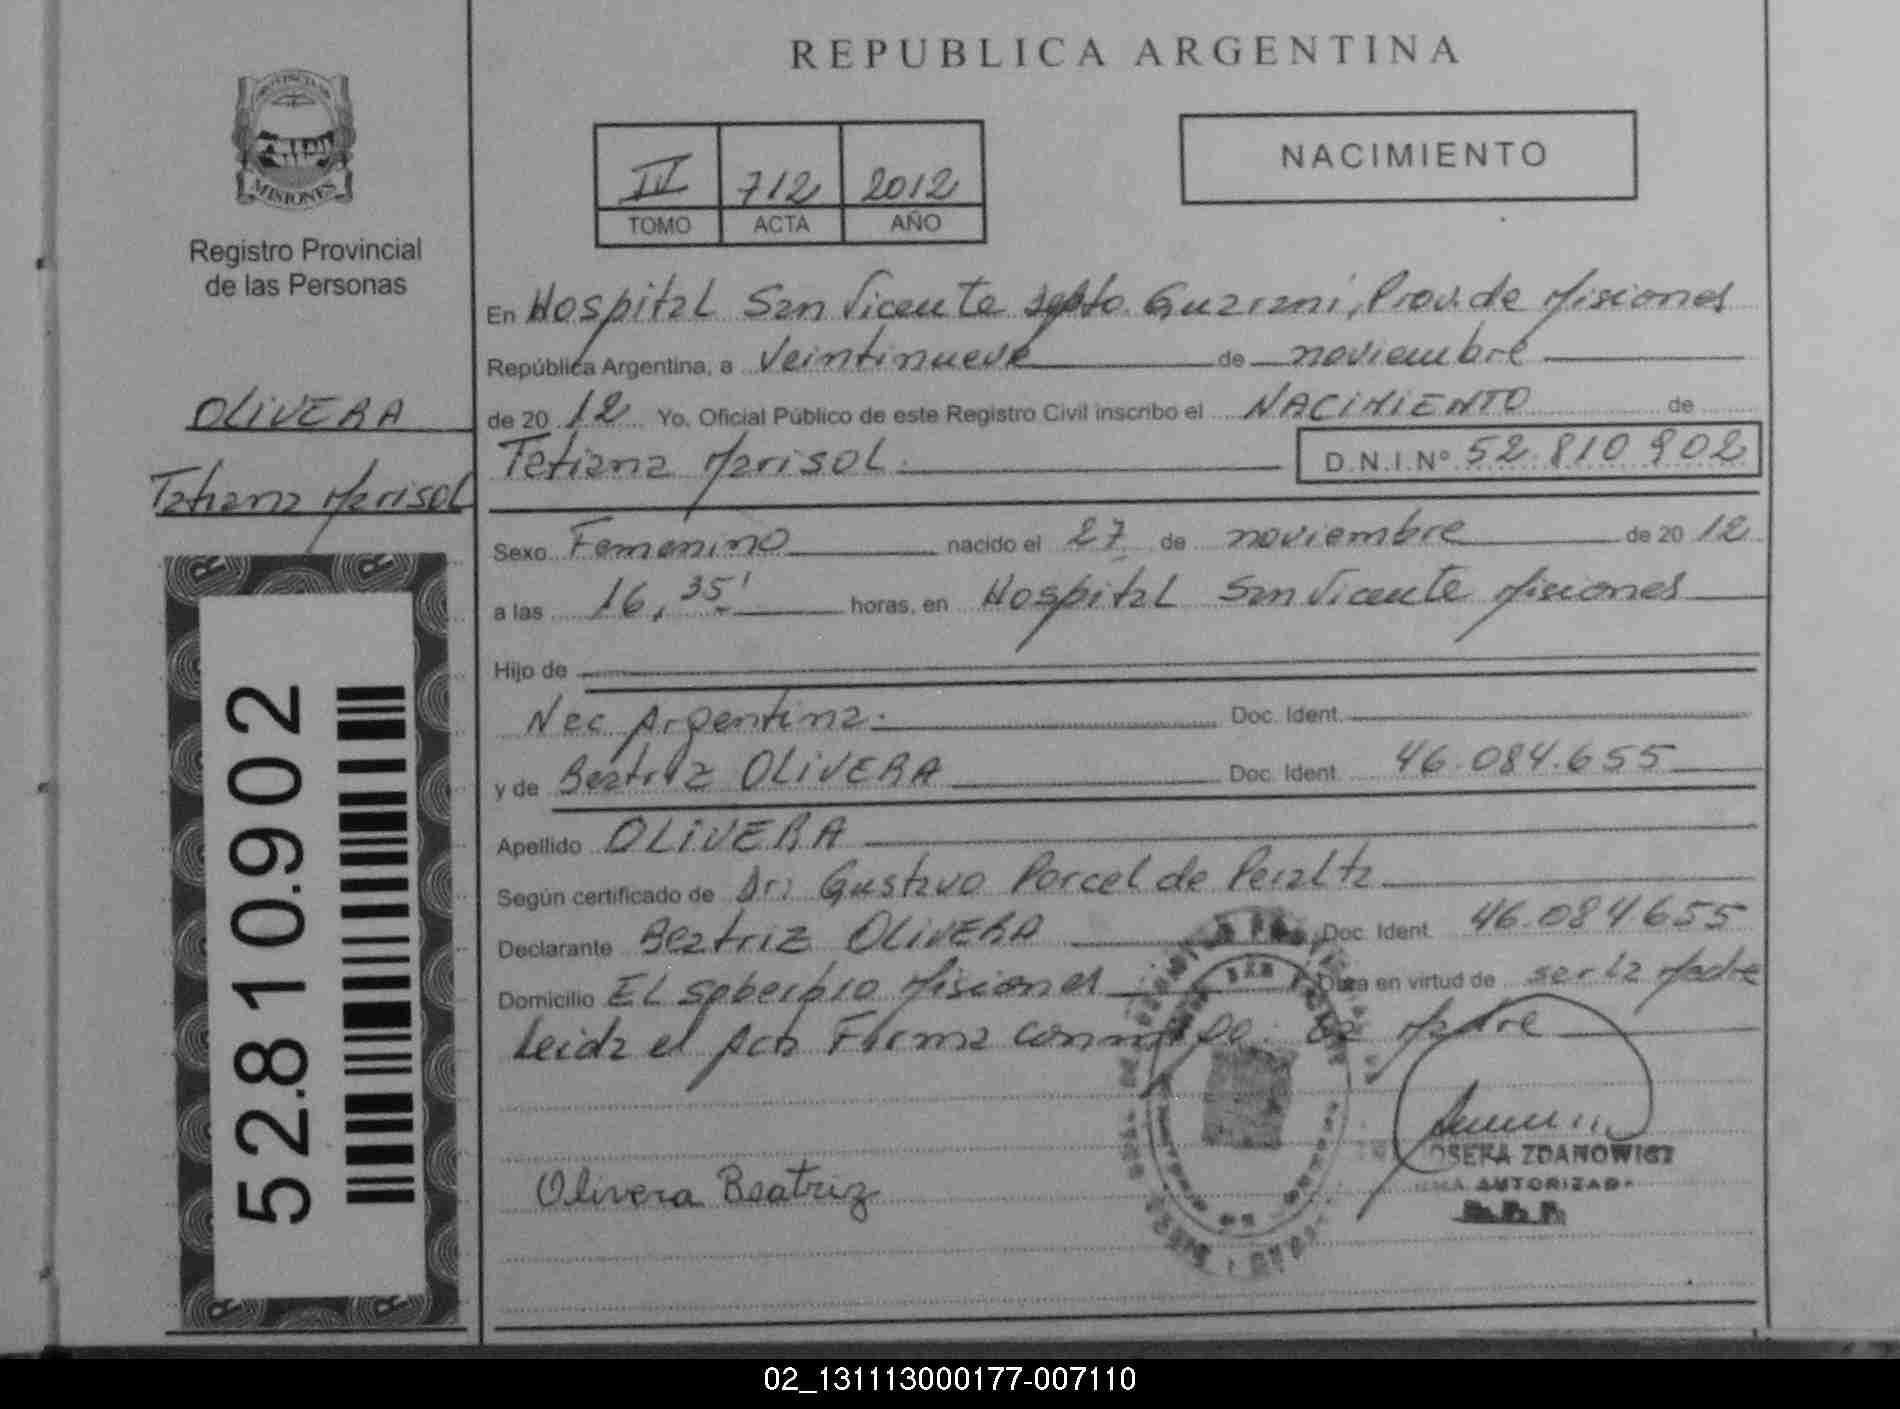 REPUBLICA ARGENTINA
PROVINCIA DE
MISIONES
Registro Provincial
de las Personas
IV 712 2012
TOMO ACTA AÑO
NACIMIENTO
En Hospital San Vicente Dpto. Guarani, Prov. de Misiones
República Argentina, a veintinueve de noviembre
de 20 12 Yo, Oficial Público de este Registro Civil inscribo el NACIMIENTO de
Tatiana Marisol. D.N.I.Nº 52.810.902
OLIVERA
Tatiana Marisol
Sexo Femenino nacido el 27 de noviembre de 20 12
a las 16,35' horas, en Hospital San Vicente Misiones
Hijo de
Nac Argentina. Doc. Ident.
y de Beatriz OLIVERA Doc. Ident. 46.084.655
Apellido OLIVERA
Según certificado de Dr: Gustavo Porcel de Peralta
Declarante Beatriz OLIVERA Doc. Ident. 46.084.655
Domicilio El soberbio Misiones Obra en virtud de ser la Madre
Leida el Acta Firma conmigo: La Madre
Olivera Beatriz
ZDANOWICZ
AUTORIZADA
R.P.P.
52.810.902
02_131113000177-007110